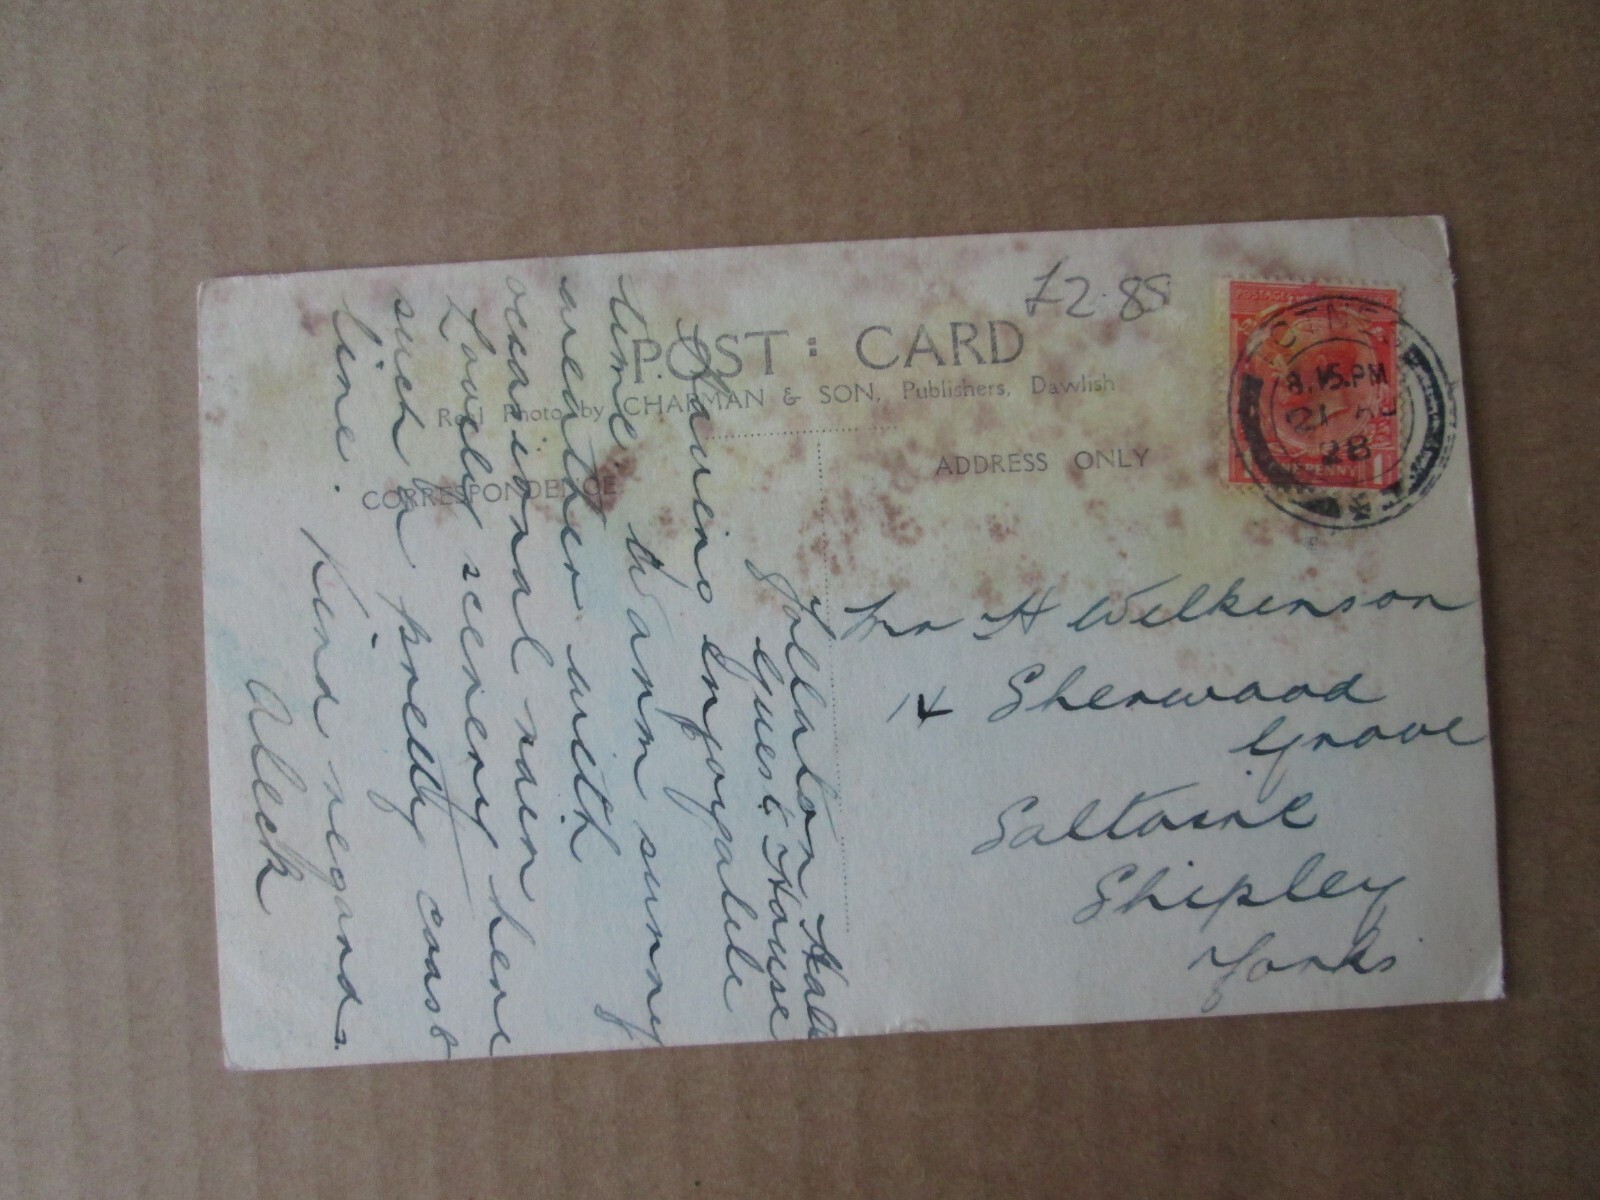 £2.85
POST : CARD
Real Photo by CHAPMAN & SON, Publishers, Dawlish
CORRESPONDENCE
ADDRESS ONLY
8.15.PM
21 AU
28
Follaton Hall
Guest House
Having enjoyable
time. Warm sunny
weather with
occasional rain
Lovely scenery here
such a pretty coast
line. Kind regards.
Aleck
Mr H Wilkinson
14 Sherwood
Grove
Saltaire
Shipley
Yorks